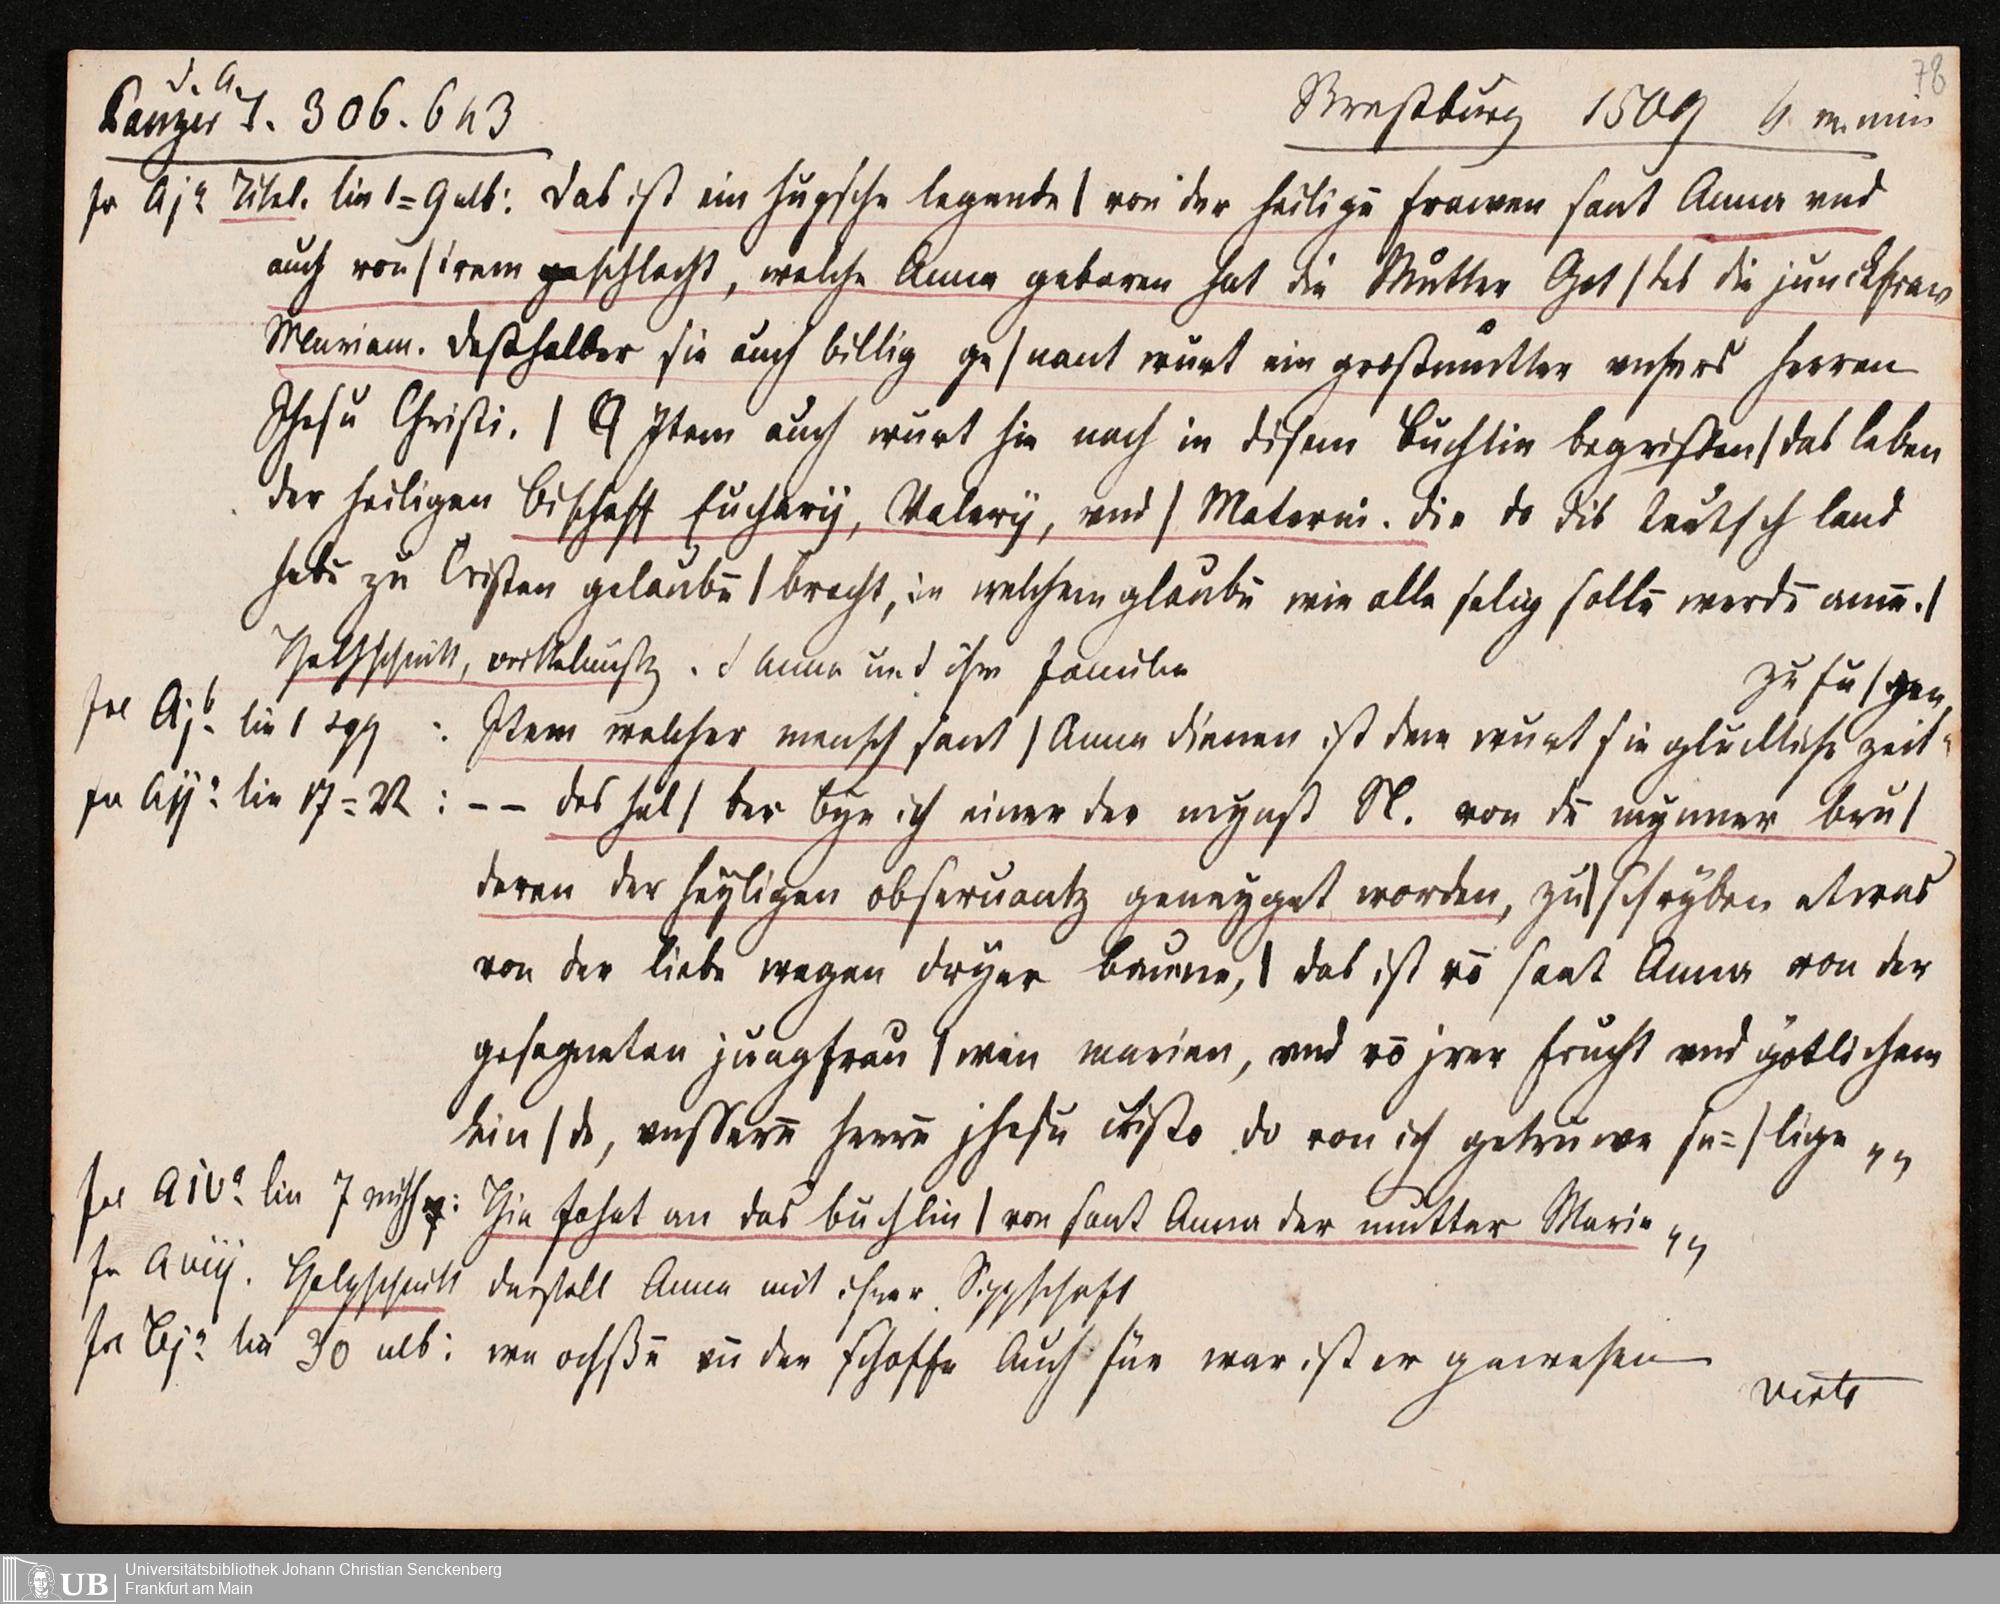 78
d. A.
Panzer I. 306. 643
Strassburg 1509
fo Aja Titel. lin 1=9 alb: Das ist ein hupsche legende | von der heiligē frawen sant Anna vnd
auch von | irem geschlecht, welche Anna geboren hat die Mutter Got | tes die junckfraw
Mariam. Desshalber sie auch billig ge | nant wurt ein grossmutter vnsers herren
Jhesu Christi. | Item auch wurt hie nach in disem buchlin begriffen | das leben
der heiligen bischoff Eucharij, Valerij, vnd | Materni. die do dis teutsch land
habē zu Cristen gelaubē | bracht, in welchem glaubē wir alle selig sollē werdē amē. |
Holzschnitt, S Anna und ihre Familie
zu fu | gen,
fol Ajb lin 1 sqq : Item welcher mensch sant | Anna dienen ist dem wurt sie gluckliche zeit
fo Aija lin 17=22 : -- des hal | ber byn ich einer der mynst N. von dē mynner bru |
deren der heyligen obseruantz geneyget worden, zu | schryben etwas
von der liebe wegen dryer baume, | das ist vō sant Anna von der
gesegneten jungfrau | wen marien, vnd vō jrer frucht vnd götlichem
kin | de, vnsserē herrē jhesu cristo do von ich getruwe se= | lige „„
fol Aiva lin 7 : Hie fahet an das buchlin | von sant Anna der mutter Marie „„
fo Aviij. Holzschnitt darstell Anna mit ihrer Sippschaft
fol Bja lin 30 alb: we ochssē vn̄ der schoffe Auch für war ist er gewesen
verte
Universitätsbibliothek Johann Christian Senckenberg
UB Frankfurt am Main